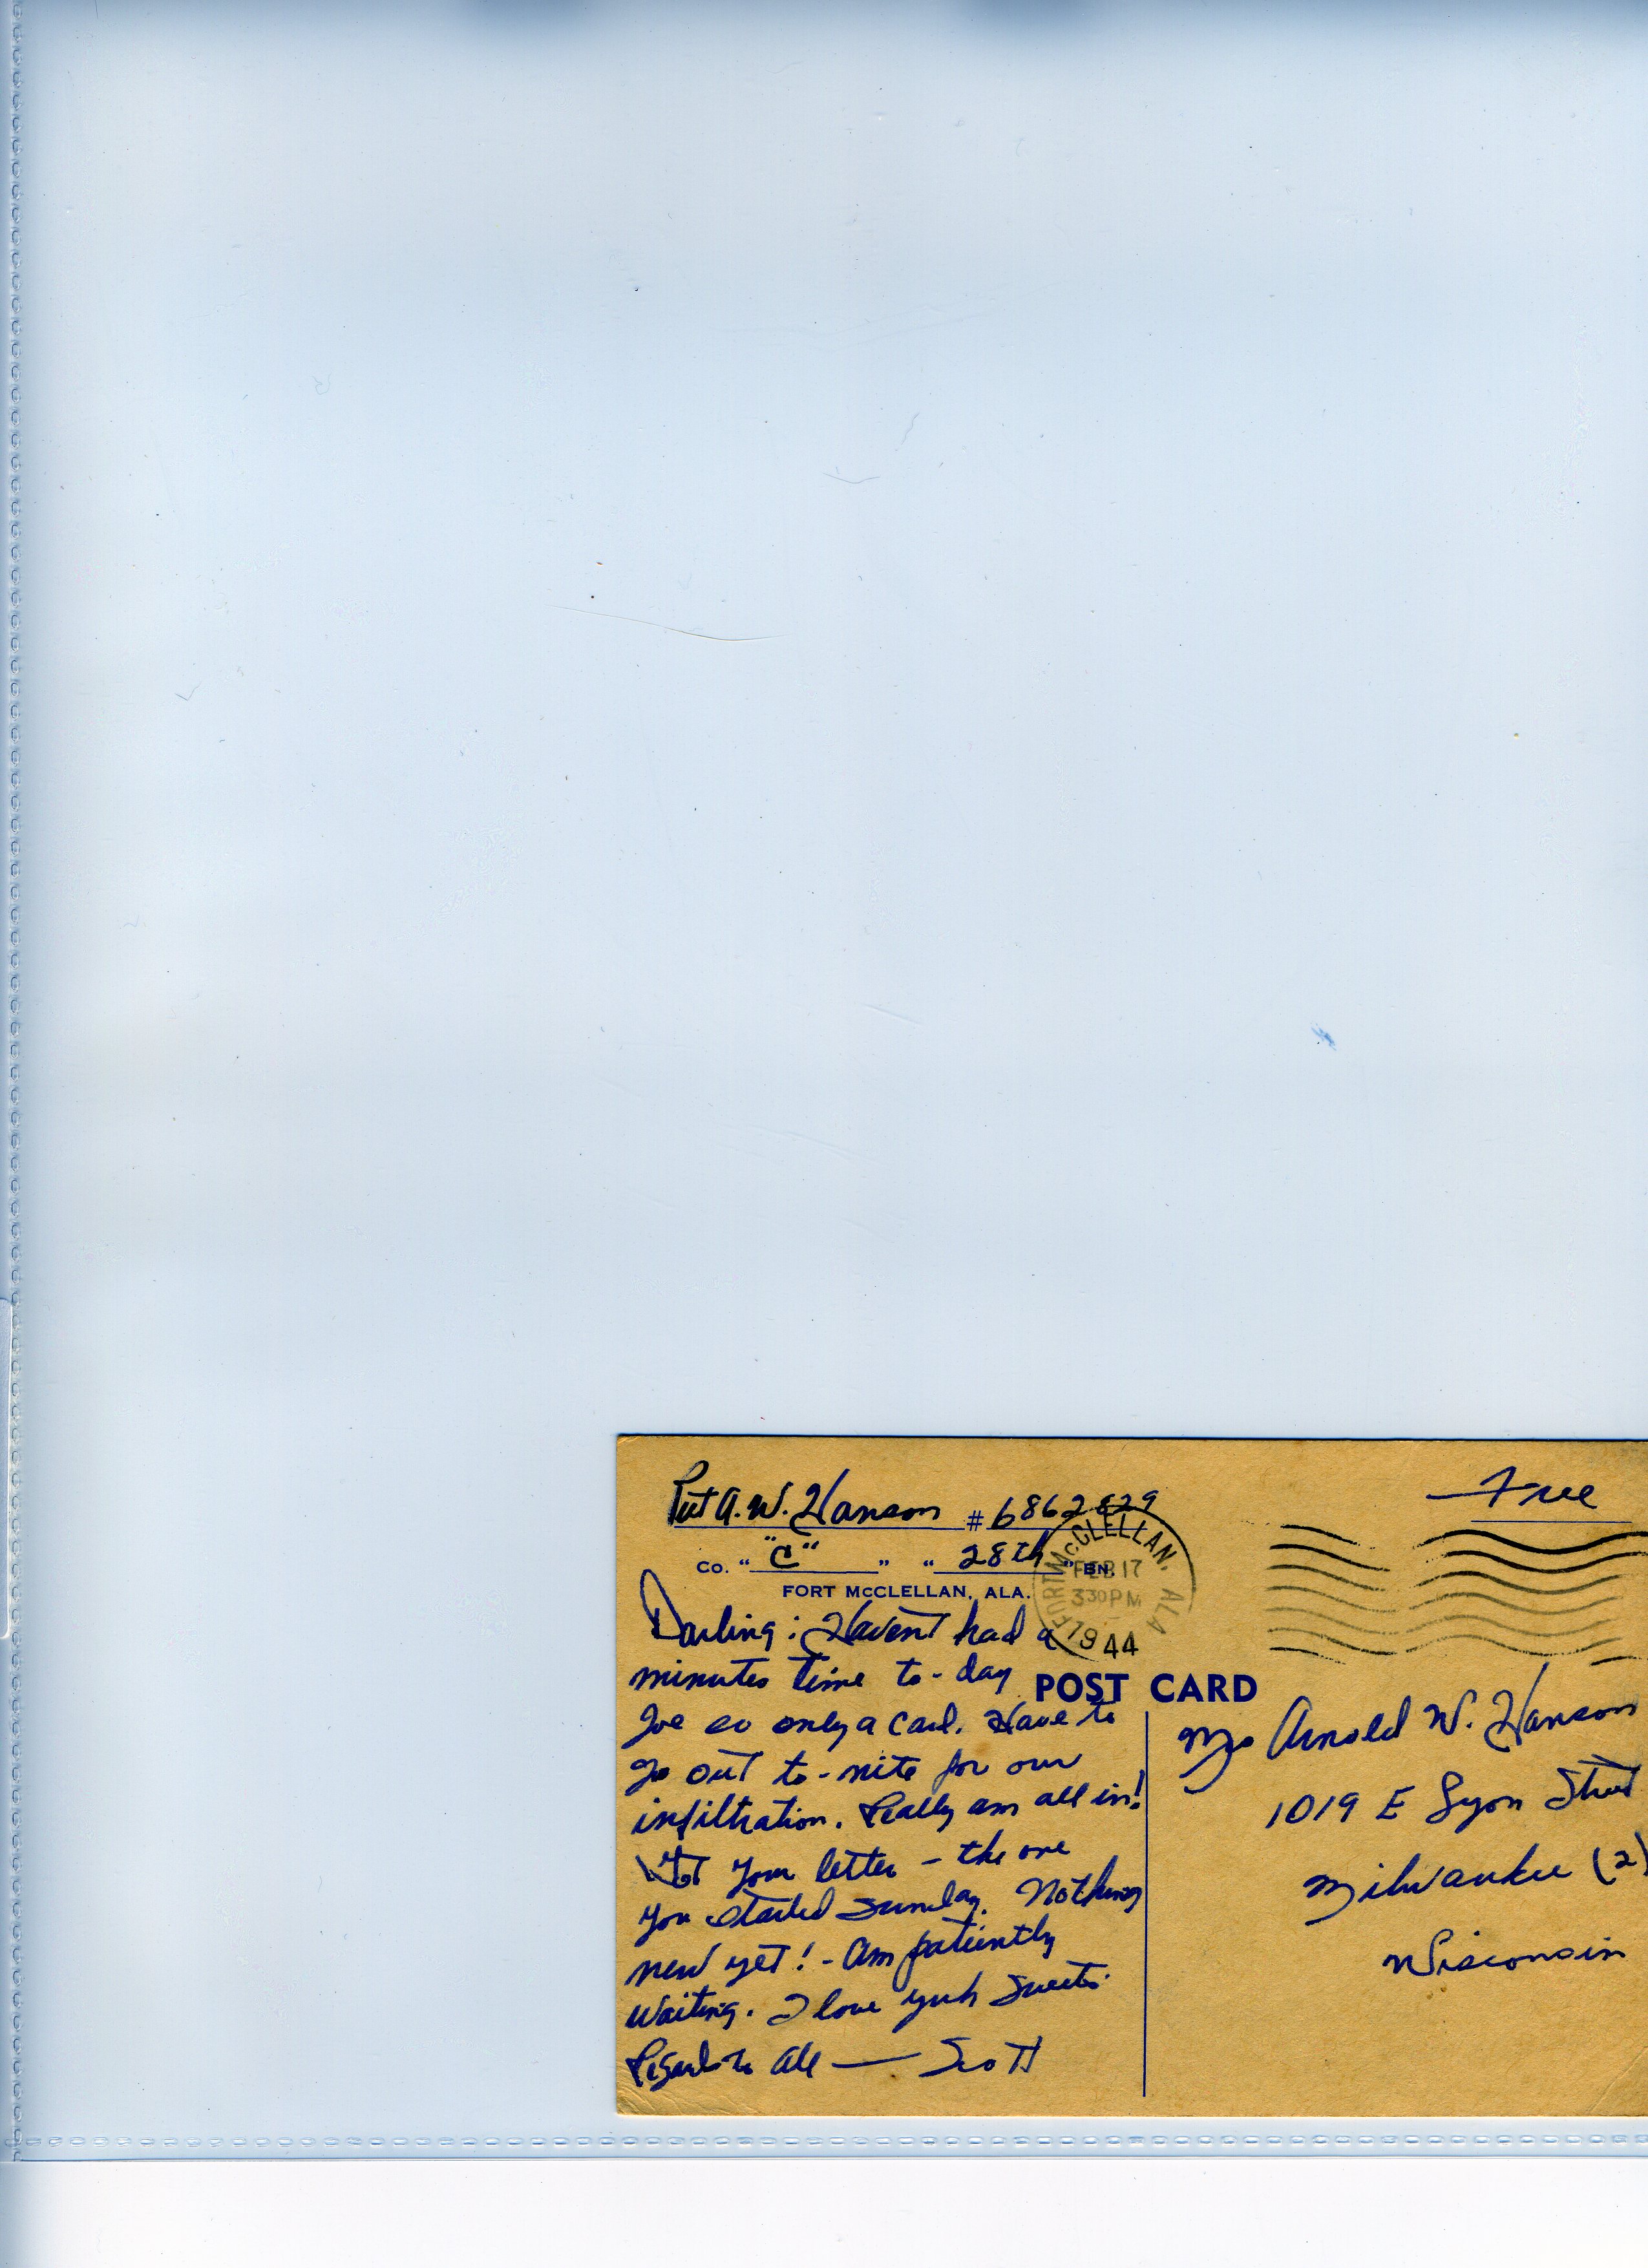 Pvt A. W. Hanson # 6862829
Co. " "C" " " 28th " BN.
FORT MCCLELLAN, ALA.
FORT McCLELLAN, ALA
FEB 17
330 PM
1944
Free
POST CARD
Darling: Havent had a
minutes time to-day
so only a card. Have to
go out to-nite for our
infiltration. Really am all in!
Got your letter - the one
you started Sunday. Nothing
new yet! - Am patiently
waiting. I love yuh Sweets.
Regards to All — Scott
Mrs Arnold W. Hanson
1019 E Lyon Street
Milwaukee (2)
Wisconsin